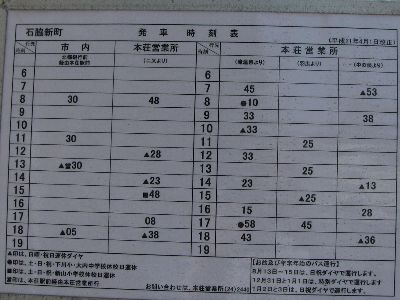 石脇新町 発車時刻表 (平成21年4月1日改正)
行先 市内 本荘営業所 行先 本荘営業所
時刻 北都銀行前 経由本荘駅前 (二又より) 時刻
6 6
7 7 45 ▲53
8 30 48 8 ●10
9 9 33 38
10 10 ▲33
11 30 11 25
12 ▲28 12 33
13 ▲營30 13 45
14 ▲23 14 23 ▲13
15 ■48 15 ▲25
16 16 28
17 08 17 ●58 45
18 ▲05 ▲38 18 43
19 19 ▲36
▲印は、日曜・祝日運休ダイヤ
●印は、土・日・祝・下川小・大内中学校休校日運休
■印は、土・日・祝・新山小学校休校日運休
営印は、本荘駅前経由本荘営業所行
お問い合わせは、本荘営業所(24)2440
【お盆及び年末年始のバス運行】
8月13日～15日は、日祝ダイヤで運行します。
12月31日と1月1日は、特別ダイヤで運行します。
1月2日と3日は、日祝ダイヤで運行します。